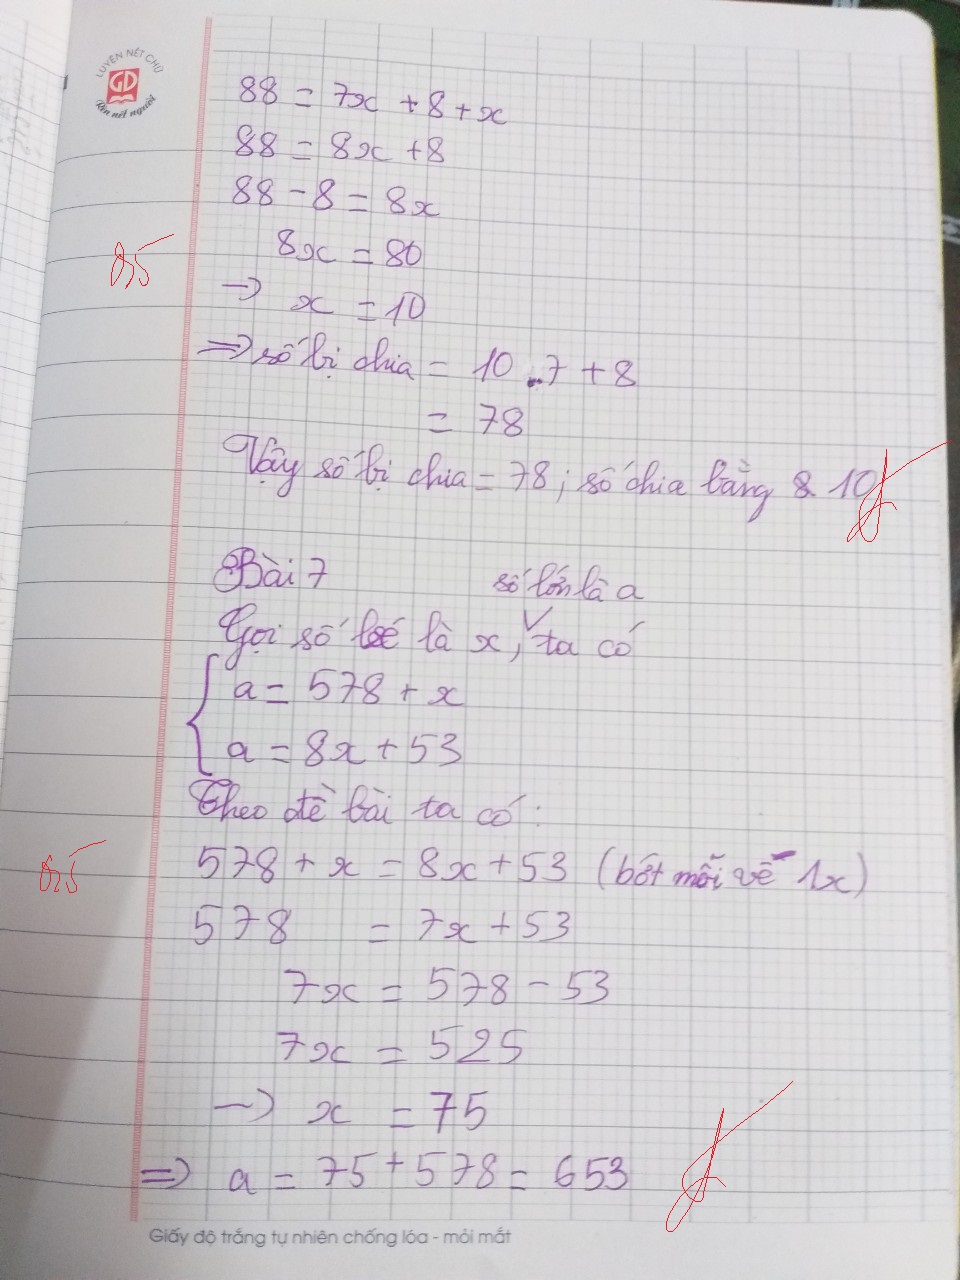 LUYỆN NÉT CHỮ
GD
Rèn nết người
88 = 7x + 8 + x
88 = 8x + 8
88 - 8 = 8x
8x = 80
0,5
→ x = 10
⇒ số bị chia = 10 . 7 + 8
= 78
Vậy số bị chia = 78 ; số chia bằng 10
Bài 7
số lớn là a
Gọi số bé là x, ta có
a = 578 + x
a = 8x + 53
Theo đề bài ta có :
578 + x = 8x + 53 (bớt mỗi vế 1x)
0,5
578 = 7x + 53
7x = 578 - 53
7x = 525
→ x = 75
⇒ a = 75 + 578 = 653
Giấy độ trắng tự nhiên chống lóa - mỏi mắt